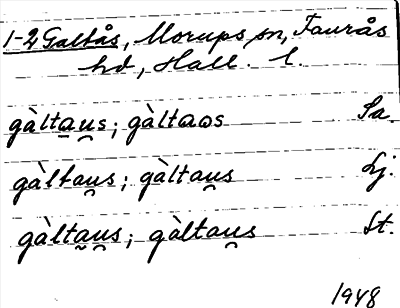 1-2 Galtås, Morups sn, Faurås
hd, Hall. l.
gàlta̱u̯s; gàltaωs Sa.
gàltau̯s; gàltau̯s Lj.
gàlta̱u̯s; gàltau̯s St.
1948